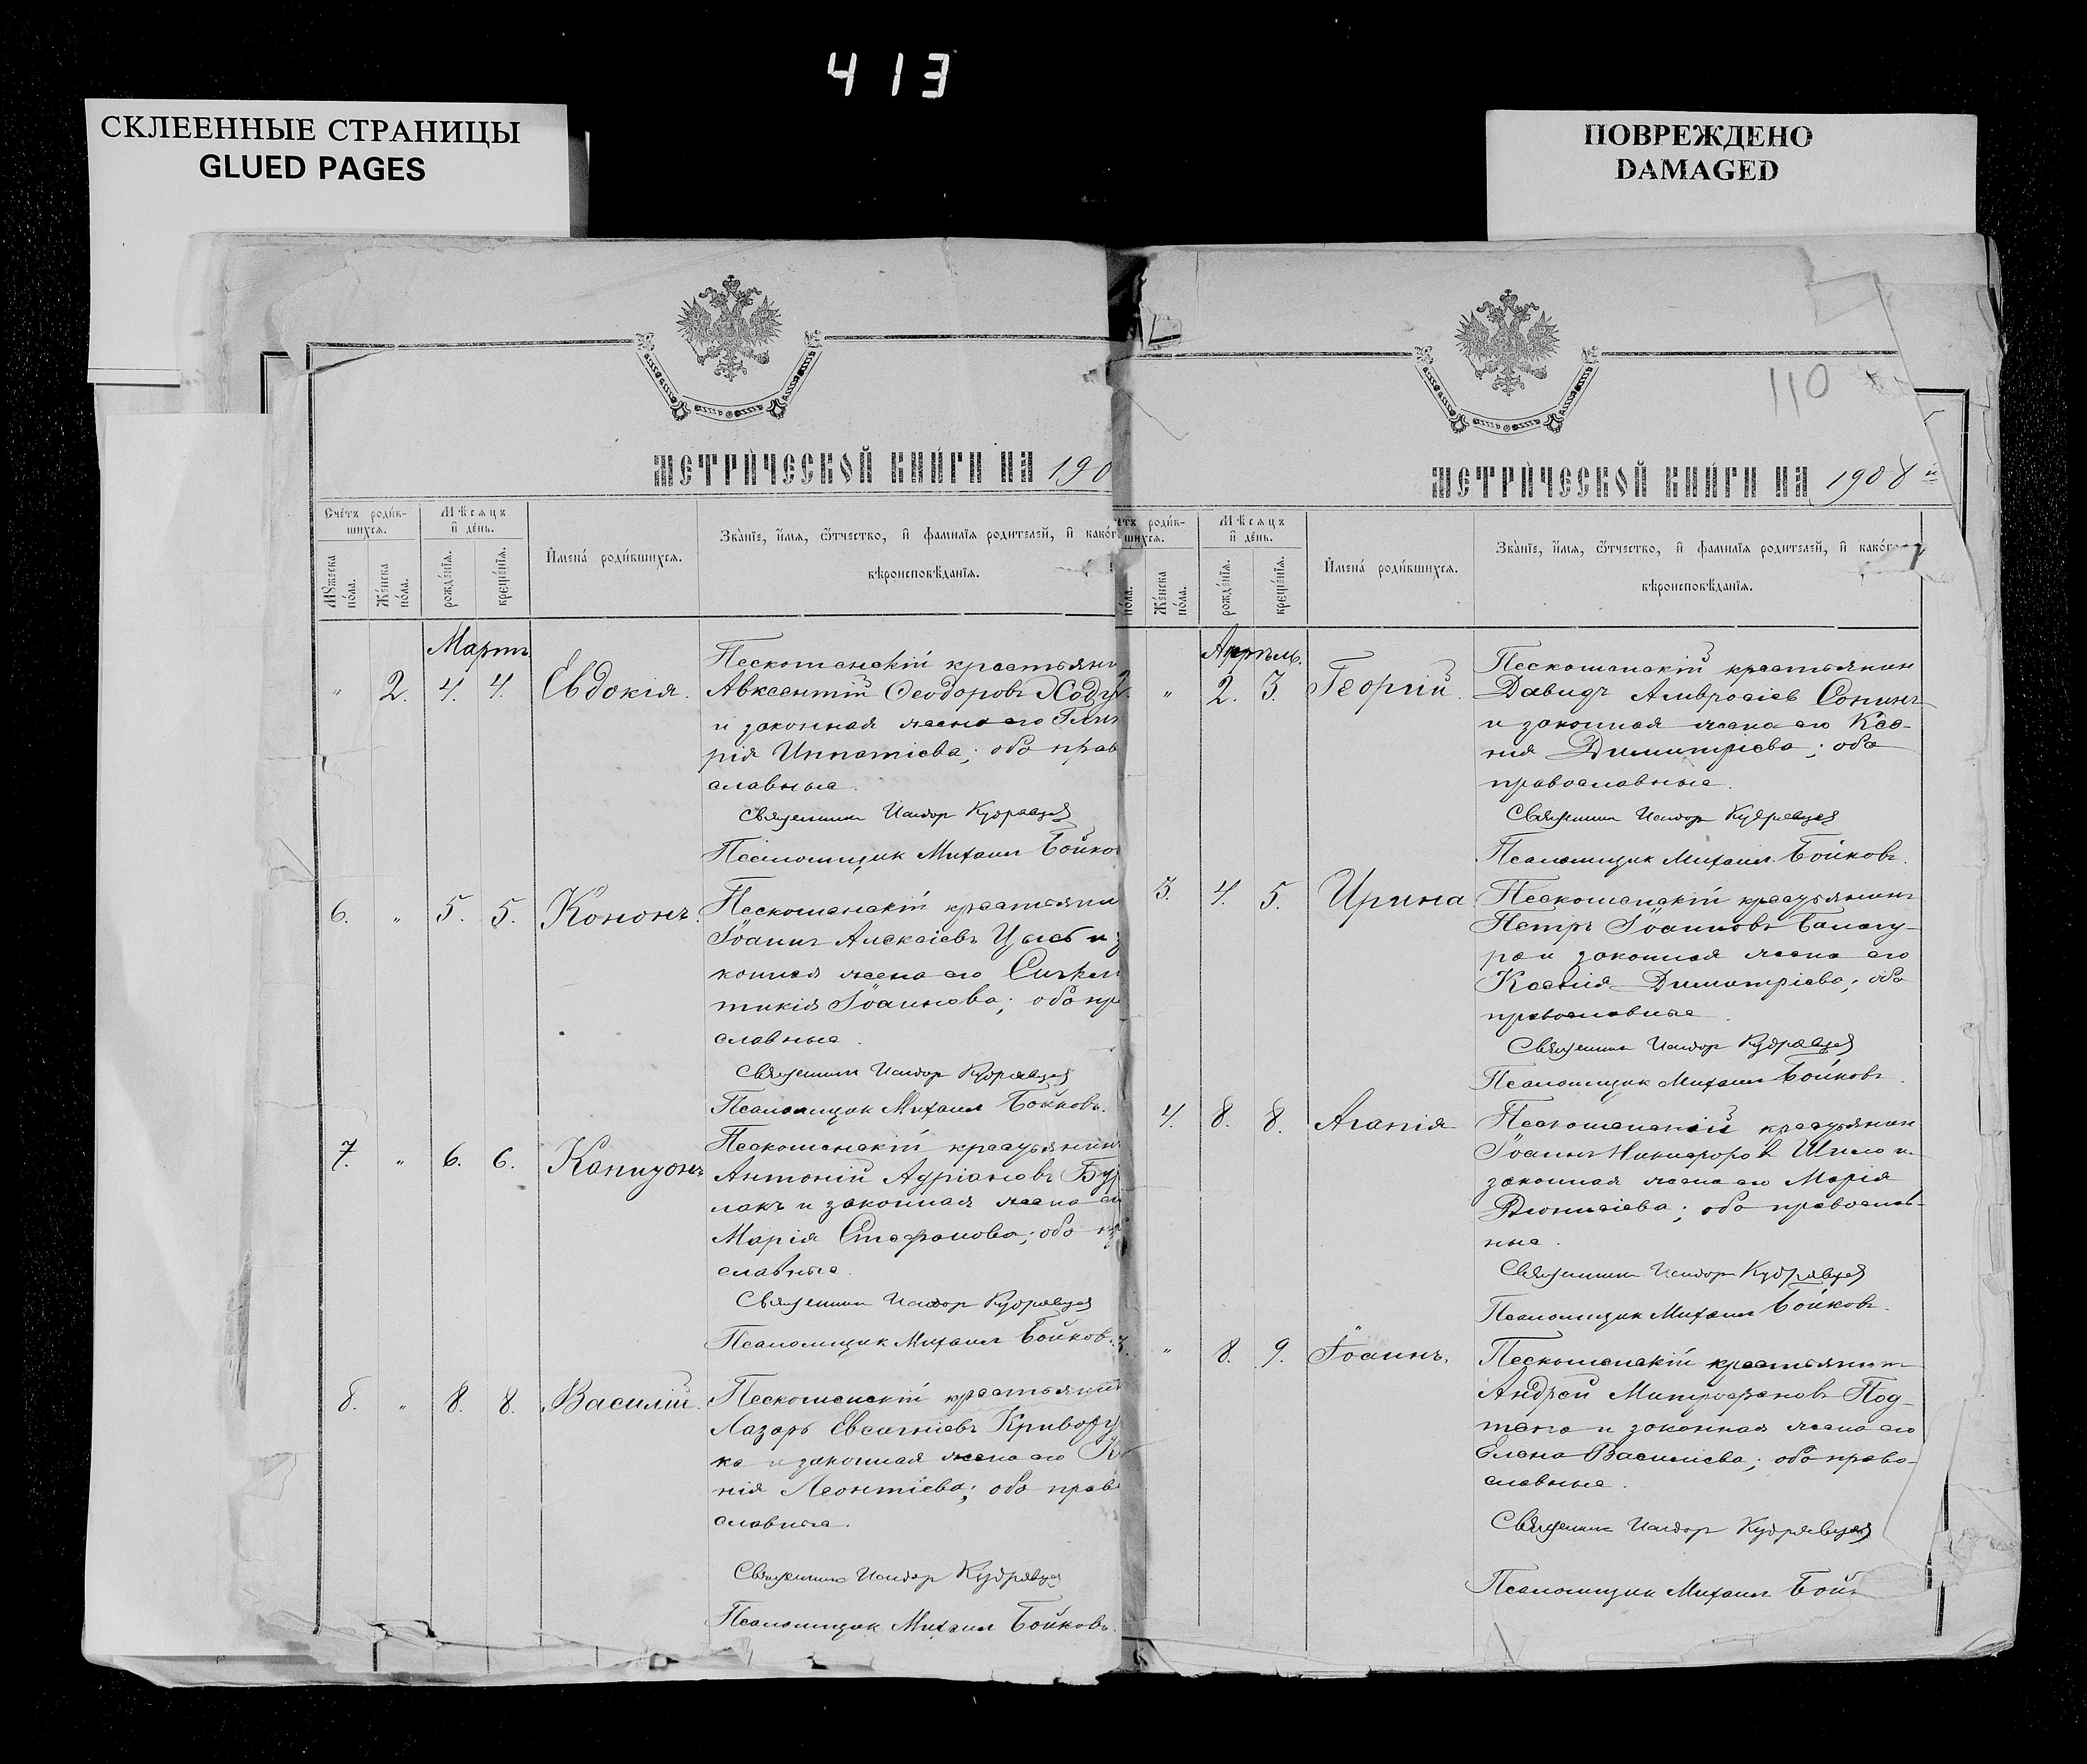 413
СКЛЕЕННЫЕ СТРАНИЦЫ
GLUED PAGES
ПОВРЕЖДЕНО
DAMAGED
МЕТРИЧЕСКОЙ КНИГИ НА 190
Счетъ родив-
шихся.
Мѣсяцъ
и день.
Имена родившихся.
Званіе, имя, отчество, и фамилія родителей, и каког
вѣроисповѣданія.
Мужеска
пола.
Женска
пола.
рожденія.
крещенія.
Мартъ.
" 2. 4. 4. Евдокія.
Пескошанскій крестьянин
Авксентій Ѳеодоровъ Ходу
и законная жена его Глик
рія Ипатіева; оба прав
славные.
Священникъ Исидор Кудрявцев
Псаломщик Михаил Бойко
6. " 5. 5. Кононъ.
Пескошанскій крестьяни
Іоаннъ Алексіевъ
конная жена его Синкли
тикія Іоаннова; оба пр
славные.
Священник Исидор Кудрявцев
Псаломщик Михаил Бойковъ.
7. " 6. 6. Капитонъ
Пескошанскій крестьянин
Антоній Адріановъ Бур
лакъ и законная жена ег
Марія Стефанова; оба
славные.
Священник Исидор Кудрявцев
Псаломщик Михаил Бойков
8. " 8. 8. Василій.
Пескошанскій крестьянин
Лазарь Евсигніевъ Криво
ка и законная жена его
нія Леонтіева; оба прав
славные.
Священник Исидор Кудрявцев
Псаломщик Михаил Бойковъ.
110
МЕТРИЧЕСКОЙ КНИГИ НА 1908 й
етъ родив-
шихся.
Мѣсяцъ
и день.
Имена родившихся.
Званіе, имя, отчество, и фамилія родителей, и каког
вѣроисповѣданія.
пола.
Женска
пола.
рожденія.
крещенія.
Апрѣль.
2. " 2. 3. Георгій.
Пескошанскій крестьянин
Давидъ Амвросіев Сонинъ
и законная жена его Ксе-
нія Димитріева; оба
православные.
Священник Исидор Кудрявцев
Псаломщик Михаил Бойковъ.
3. 4. 5. Ирина
Пескошанскій крестьянинъ
Петръ Іоанновъ Балагу-
ра и законная жена его
Ксенія Димитріева; оба
православные.
Священник Исидор Кудрявцев
Псаломщик Михаил Бойковъ.
4. 8. 8. Агапія
Пескошанскій крестьянин
Іоаннъ Никифоров Шило и
законная жена его Марія
Діонисіева; оба православ-
ные.
Священник Исидор Кудрявцев
Псаломщик Михаил Бойковъ.
3. " 8. 9. Іоаннъ.
Пескошанскій крестьянин
Андрей Митрофановъ Под-
тана и законная жена его
Елена Василіева; оба право-
славные.
Священник Исидор Кудрявцев
Псаломщик Михаил Бой